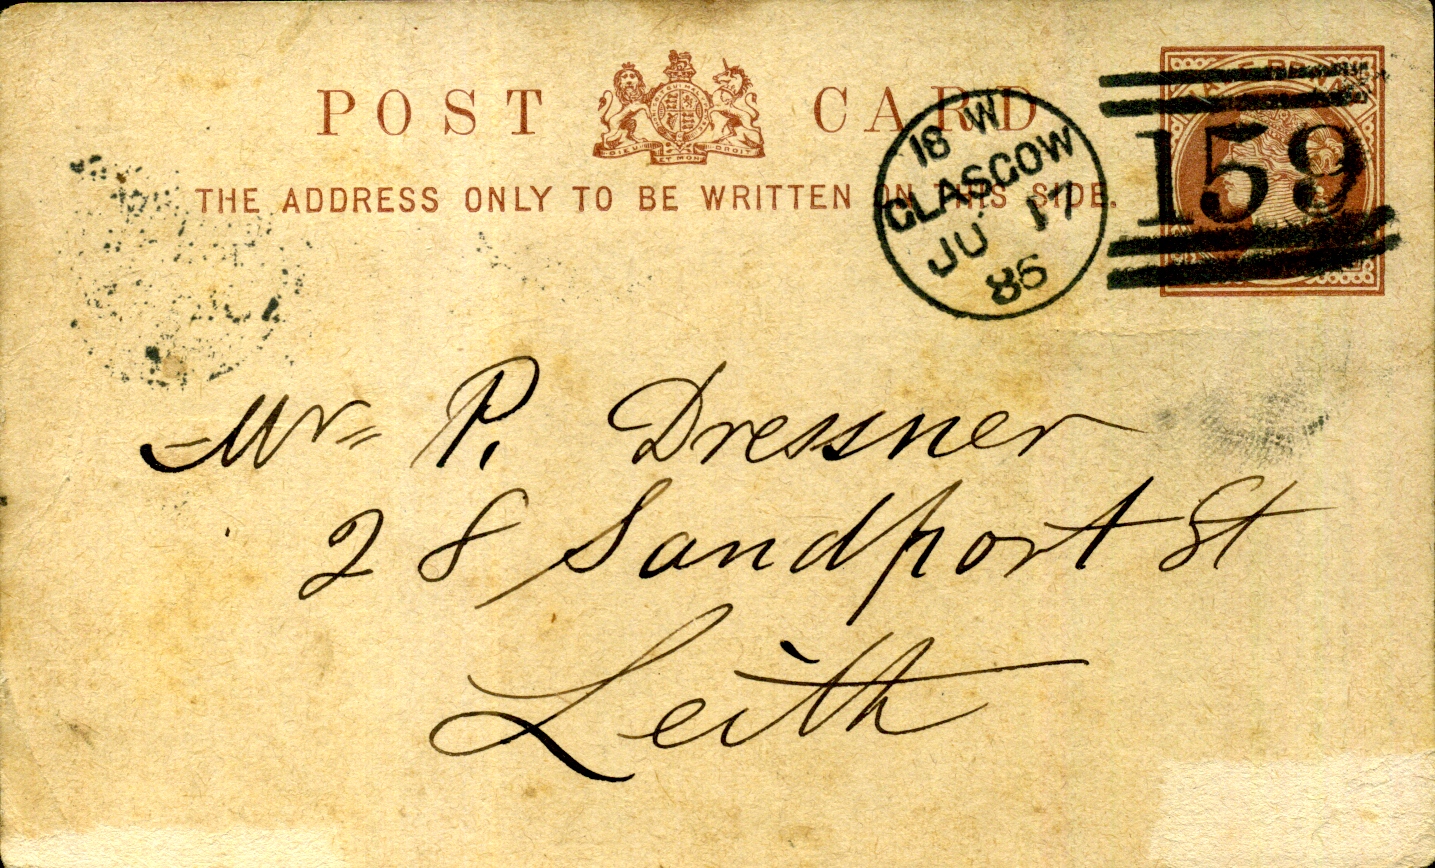 POST CARD
THE ADDRESS ONLY TO BE WRITTEN ON THIS SIDE.
18 W
GLASGOW
JU 17
86
159
DIEU ET MON DROIT
Mr P. Dressner
28 Sandport St
Leith